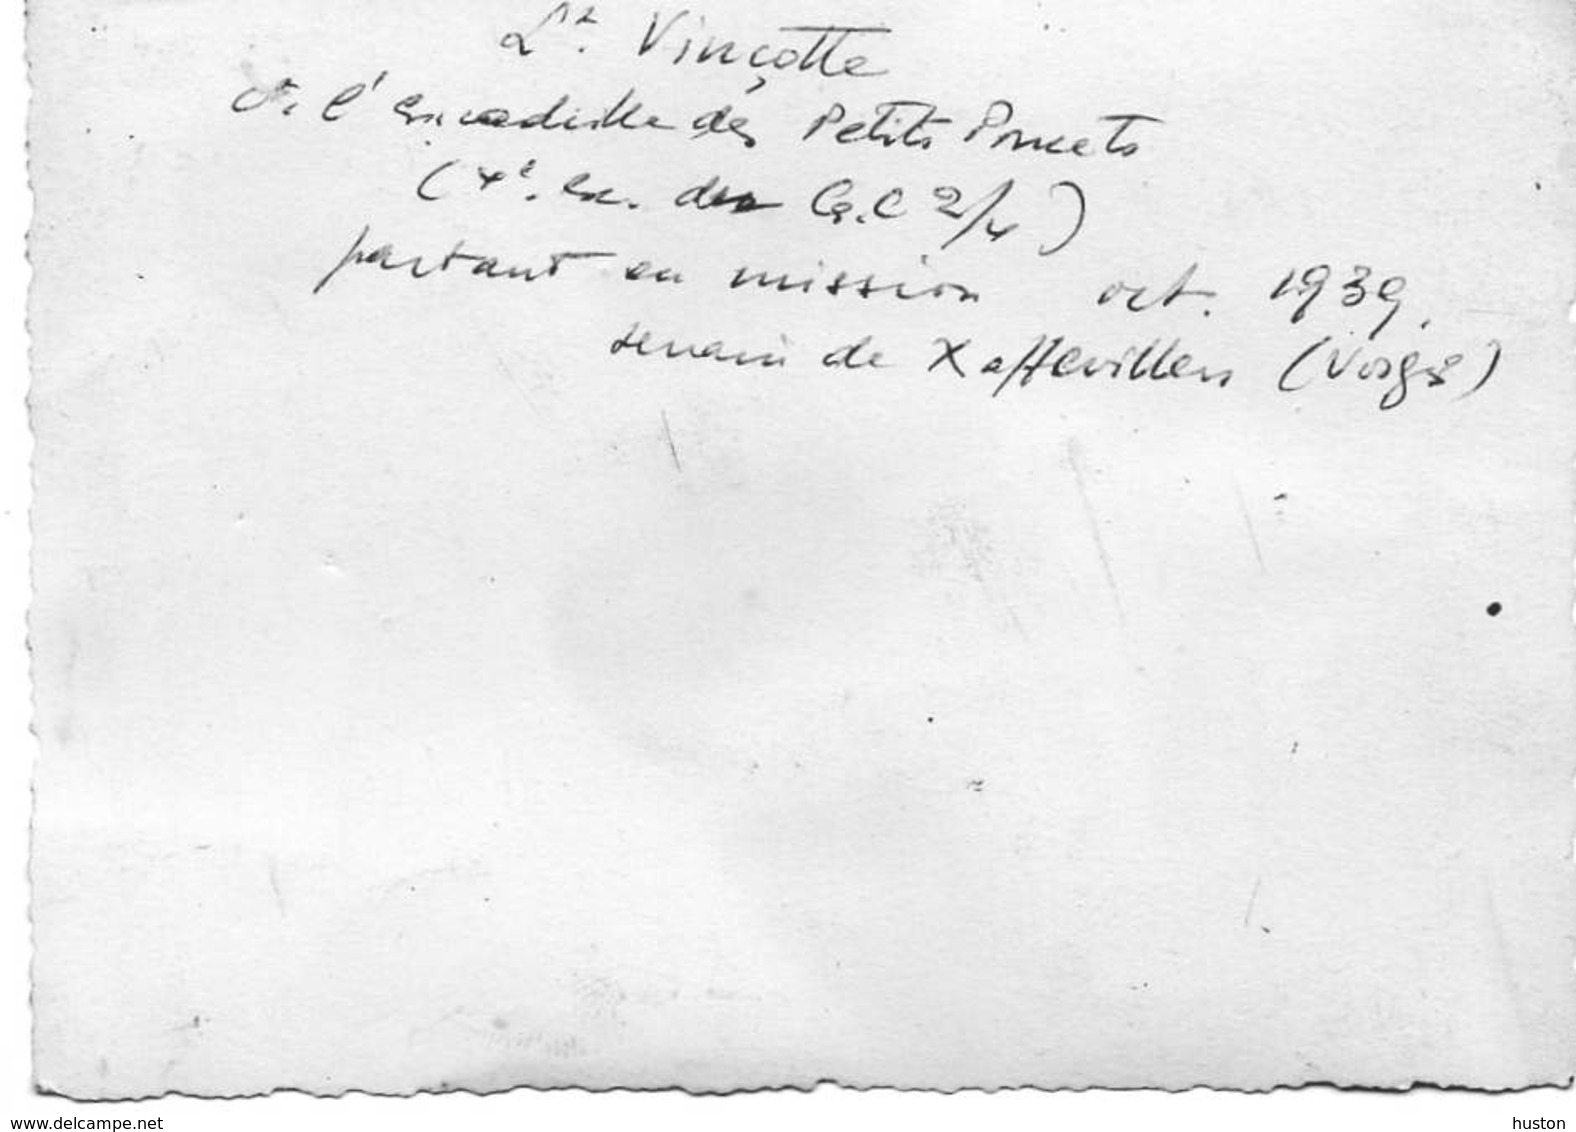 Lt. Vinçotte
de l'escadrille des Petits Poucets
(4e. Esc. du G.C 2/4)
partant en mission oct. 1939.
terrain de Xaffevillers (Vosges)
www.delcampe.net
huston